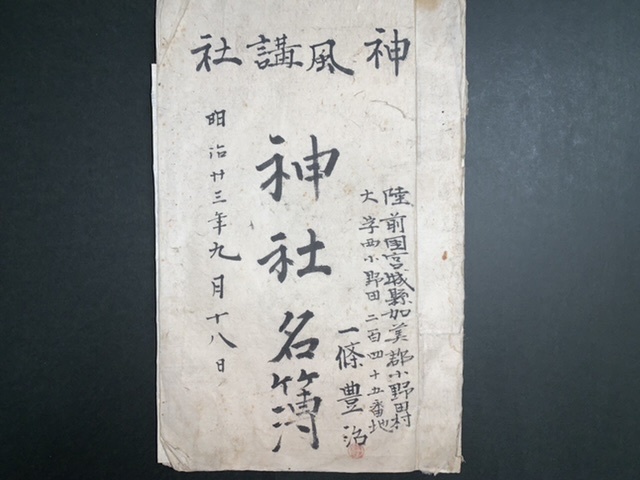 神風講社
陸前国宮城縣加美郡小野田村
大字西小野田二百四十五番地
一條豊治
神社名簿
明治廿三年九月十八日